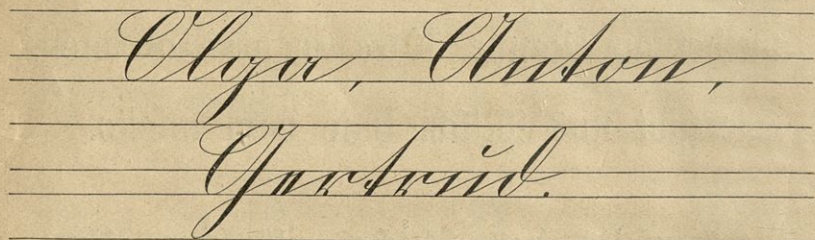 Olga, Anton,
Gertrud.